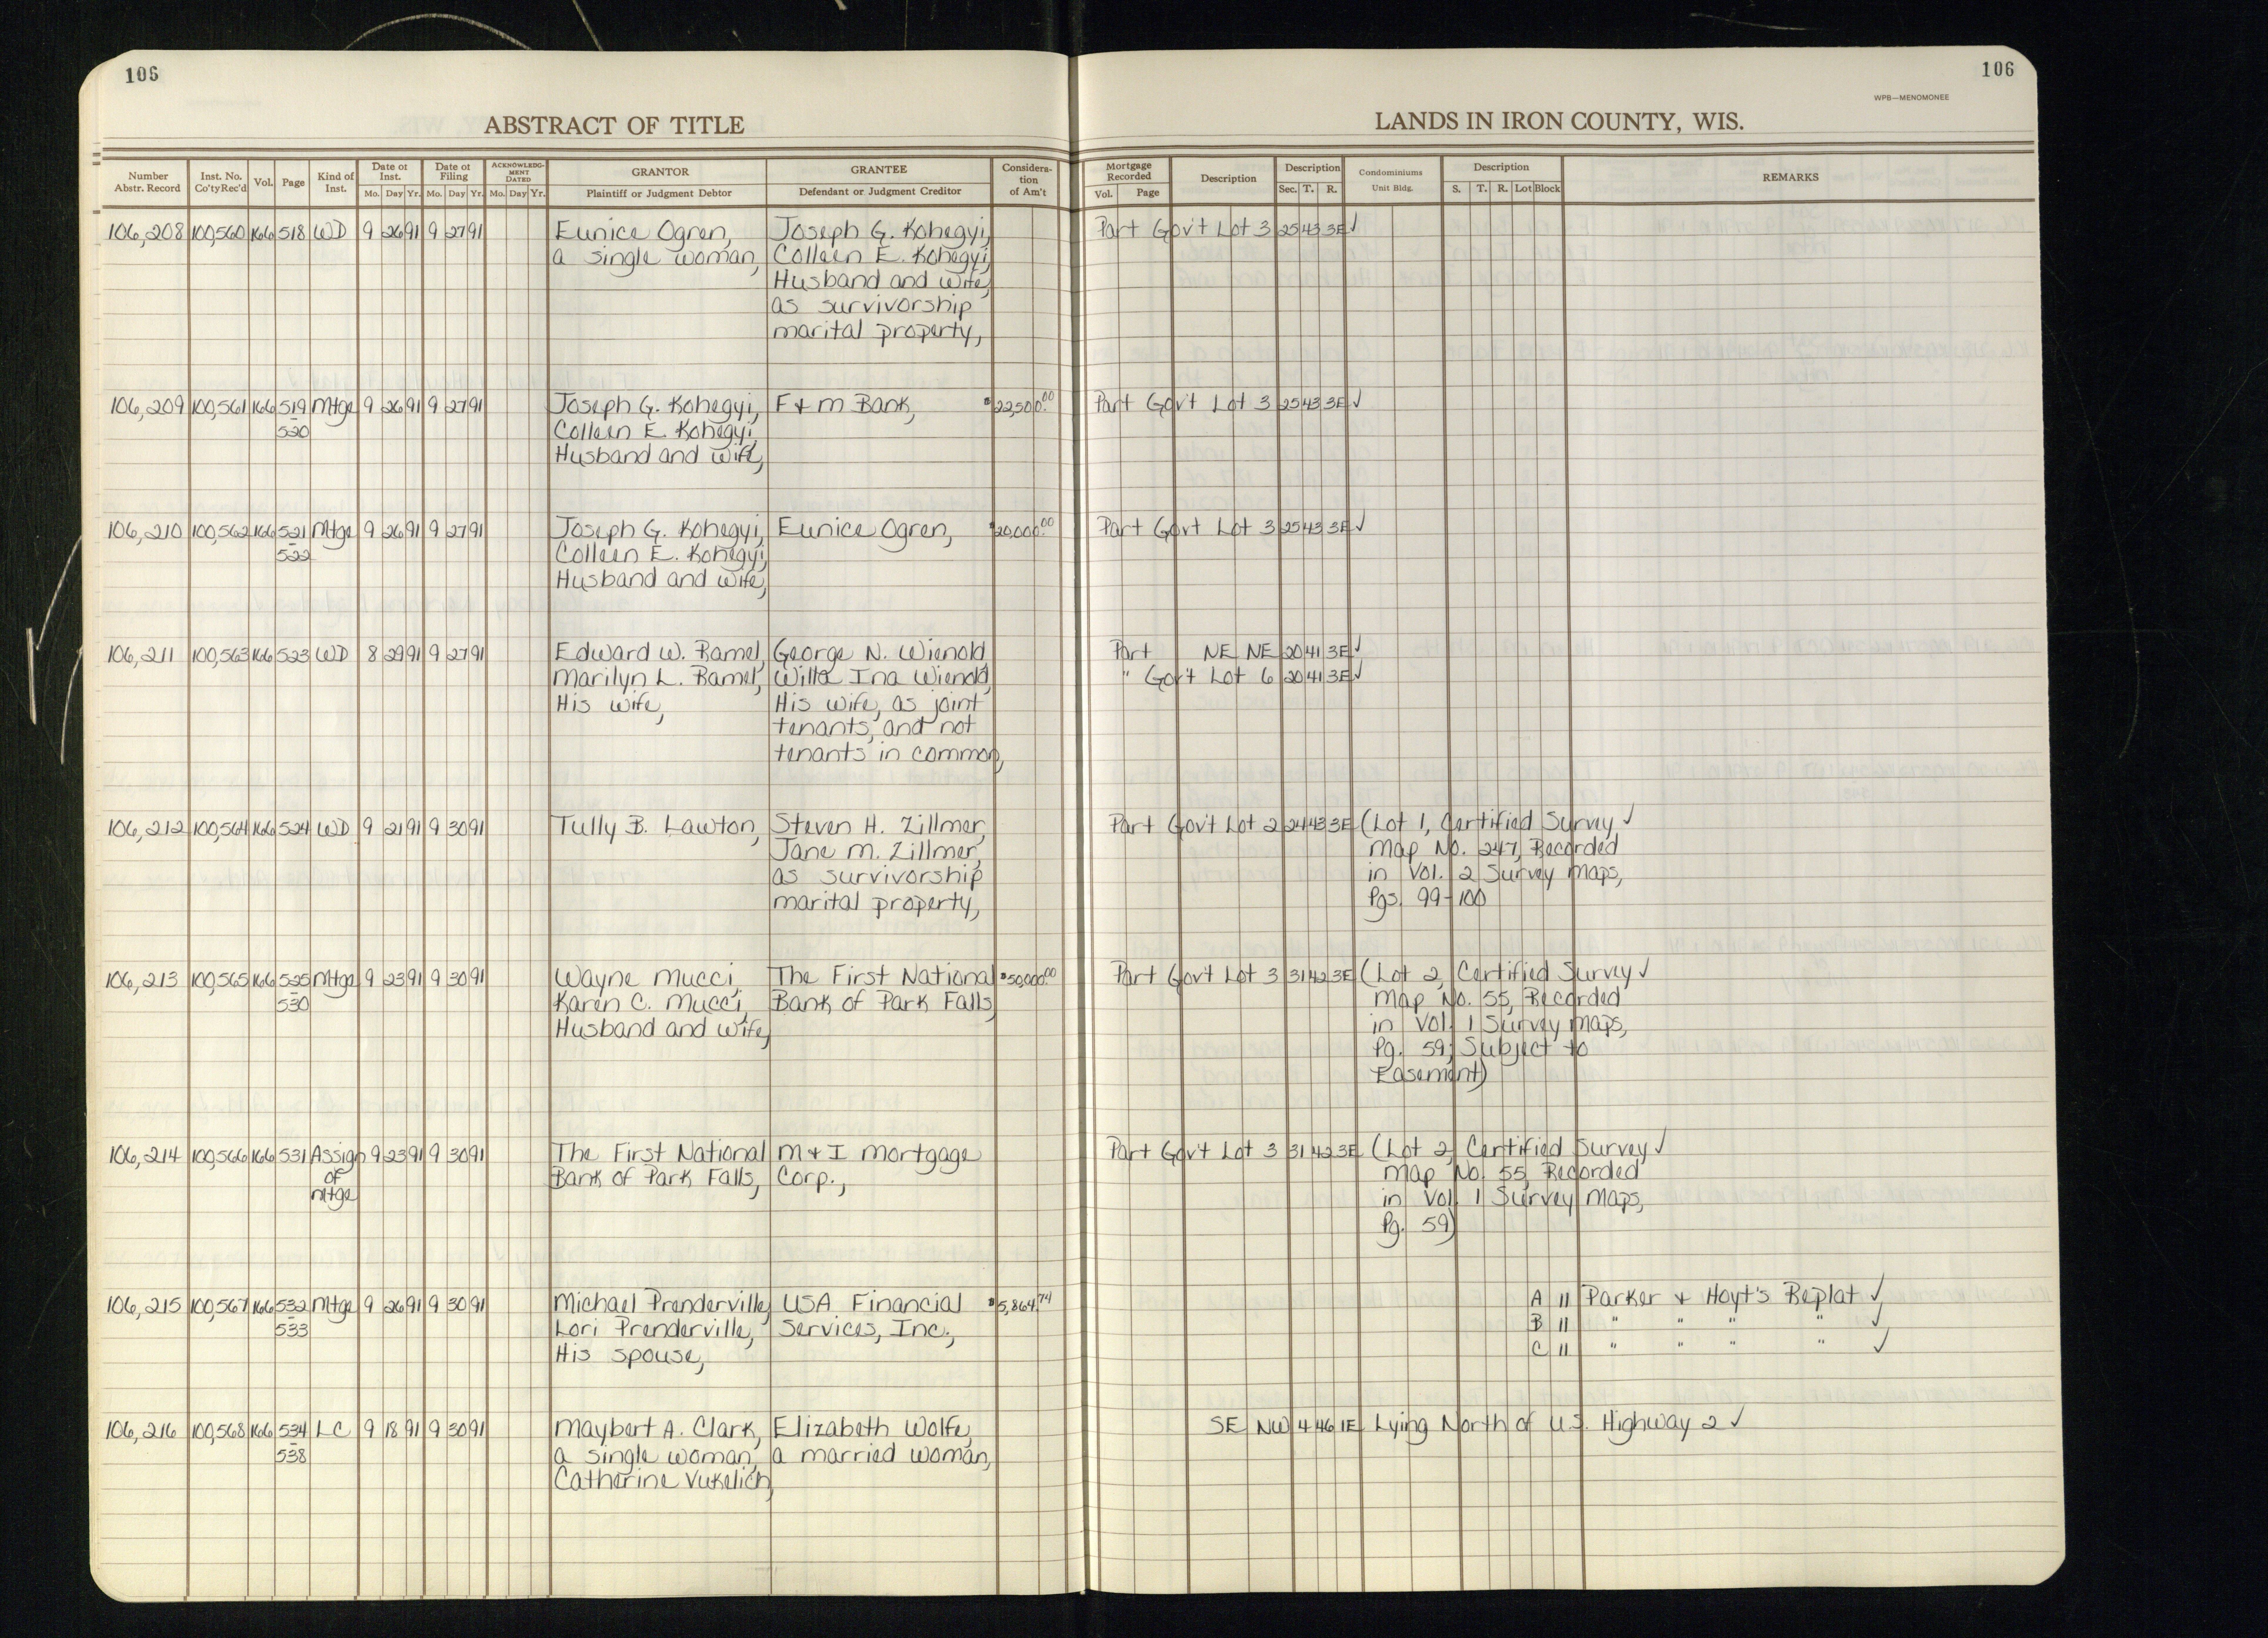 106
106
WPB—MENOMONEE
ABSTRACT OF TITLE
LANDS IN IRON COUNTY, WIS.
Number Abstr. Record Inst. No. Co'tyRec'd Vol. Page Kind of Inst. Date of Inst. Mo. Day Yr. Date of Filing Mo. Day Yr. ACKNOWLEDGMENT DATED Mo. Day Yr. GRANTOR Plaintiff or Judgment Debtor GRANTEE Defendant or Judgment Creditor Consideration of Am't Mortgage Recorded Vol. Page Description Description Sec. T. R. Condominiums Unit Bldg. Description S. T. R. Lot Block REMARKS
106,208 100,560 166 518 WD 9 26 91 9 27 91 Eunice Ogren, Joseph G. Kohegyi, Part Gov't Lot 3 25 43 3E ✓
a single woman, Colleen E. Kohegyi,
Husband and Wife,
as survivorship
marital property,
106,209 100,561 166 519 Mtge 9 26 91 9 27 91 Joseph G. Kohegyi, F & M Bank, $22,500.00 Part Gov't Lot 3 25 43 3E ✓
-520 Colleen E. Kohegyi,
Husband and Wife,
106,210 100,562 166 521 Mtge 9 26 91 9 27 91 Joseph G. Kohegyi, Eunice Ogren, $20,000.00 Part Gov't Lot 3 25 43 3E ✓
-522 Colleen E. Kohegyi,
Husband and Wife,
106,211 100,563 166 523 WD 8 29 91 9 27 91 Edward W. Ramel, George N. Wienold, Part NE NE 20 41 3E ✓
Marilyn L. Ramel, Willa Ina Wienold, " Gov't Lot 6 20 41 3E ✓
His wife, His wife, as joint
tenants, and not
tenants in common,
106,212 100,564 166 524 WD 9 21 91 9 30 91 Tully B. Lawton, Steven H. Zillmer, Part Gov't Lot 2 24 43 3E (Lot 1, Certified Survey ✓
Jane M. Zillmer, Map No. 247, Recorded
as survivorship in Vol. 2 Survey Maps,
marital property, Pgs. 99-100
106,213 100,565 166 525 Mtge 9 23 91 9 30 91 Wayne Mucci, The First National $50,000.00 Part Gov't Lot 3 31 42 3E (Lot 2, Certified Survey ✓
-530 Karen C. Mucci, Bank of Park Falls, Map No. 55, Recorded
Husband and Wife, in Vol. 1 Survey Maps,
Pg. 59; Subject to
Easement)
106,214 100,566 166 531 Assign 9 23 91 9 30 91 The First National M & I Mortgage Part Gov't Lot 3 31 42 3E (Lot 2, Certified Survey ✓
of Bank of Park Falls, Corp., Map No. 55, Recorded
Mtge in Vol. 1 Survey Maps,
Pg. 59)
106,215 100,567 166 532 Mtge 9 26 91 9 30 91 Michael Prenderville, USA Financial $5,864.74 A 11 Parker & Hoyt's Replat ✓
-533 Lori Prenderville, Services, Inc., B 11 " " " " ✓
His spouse, C 11 " " " " ✓
106,216 100,568 166 534 LC 9 18 91 9 30 91 Maybert A. Clark, Elizabeth Wolfe, SE NW 4 46 1E Lying North of U.S. Highway 2 ✓
-538 a single woman, a married woman,
Catherine Vukelich,